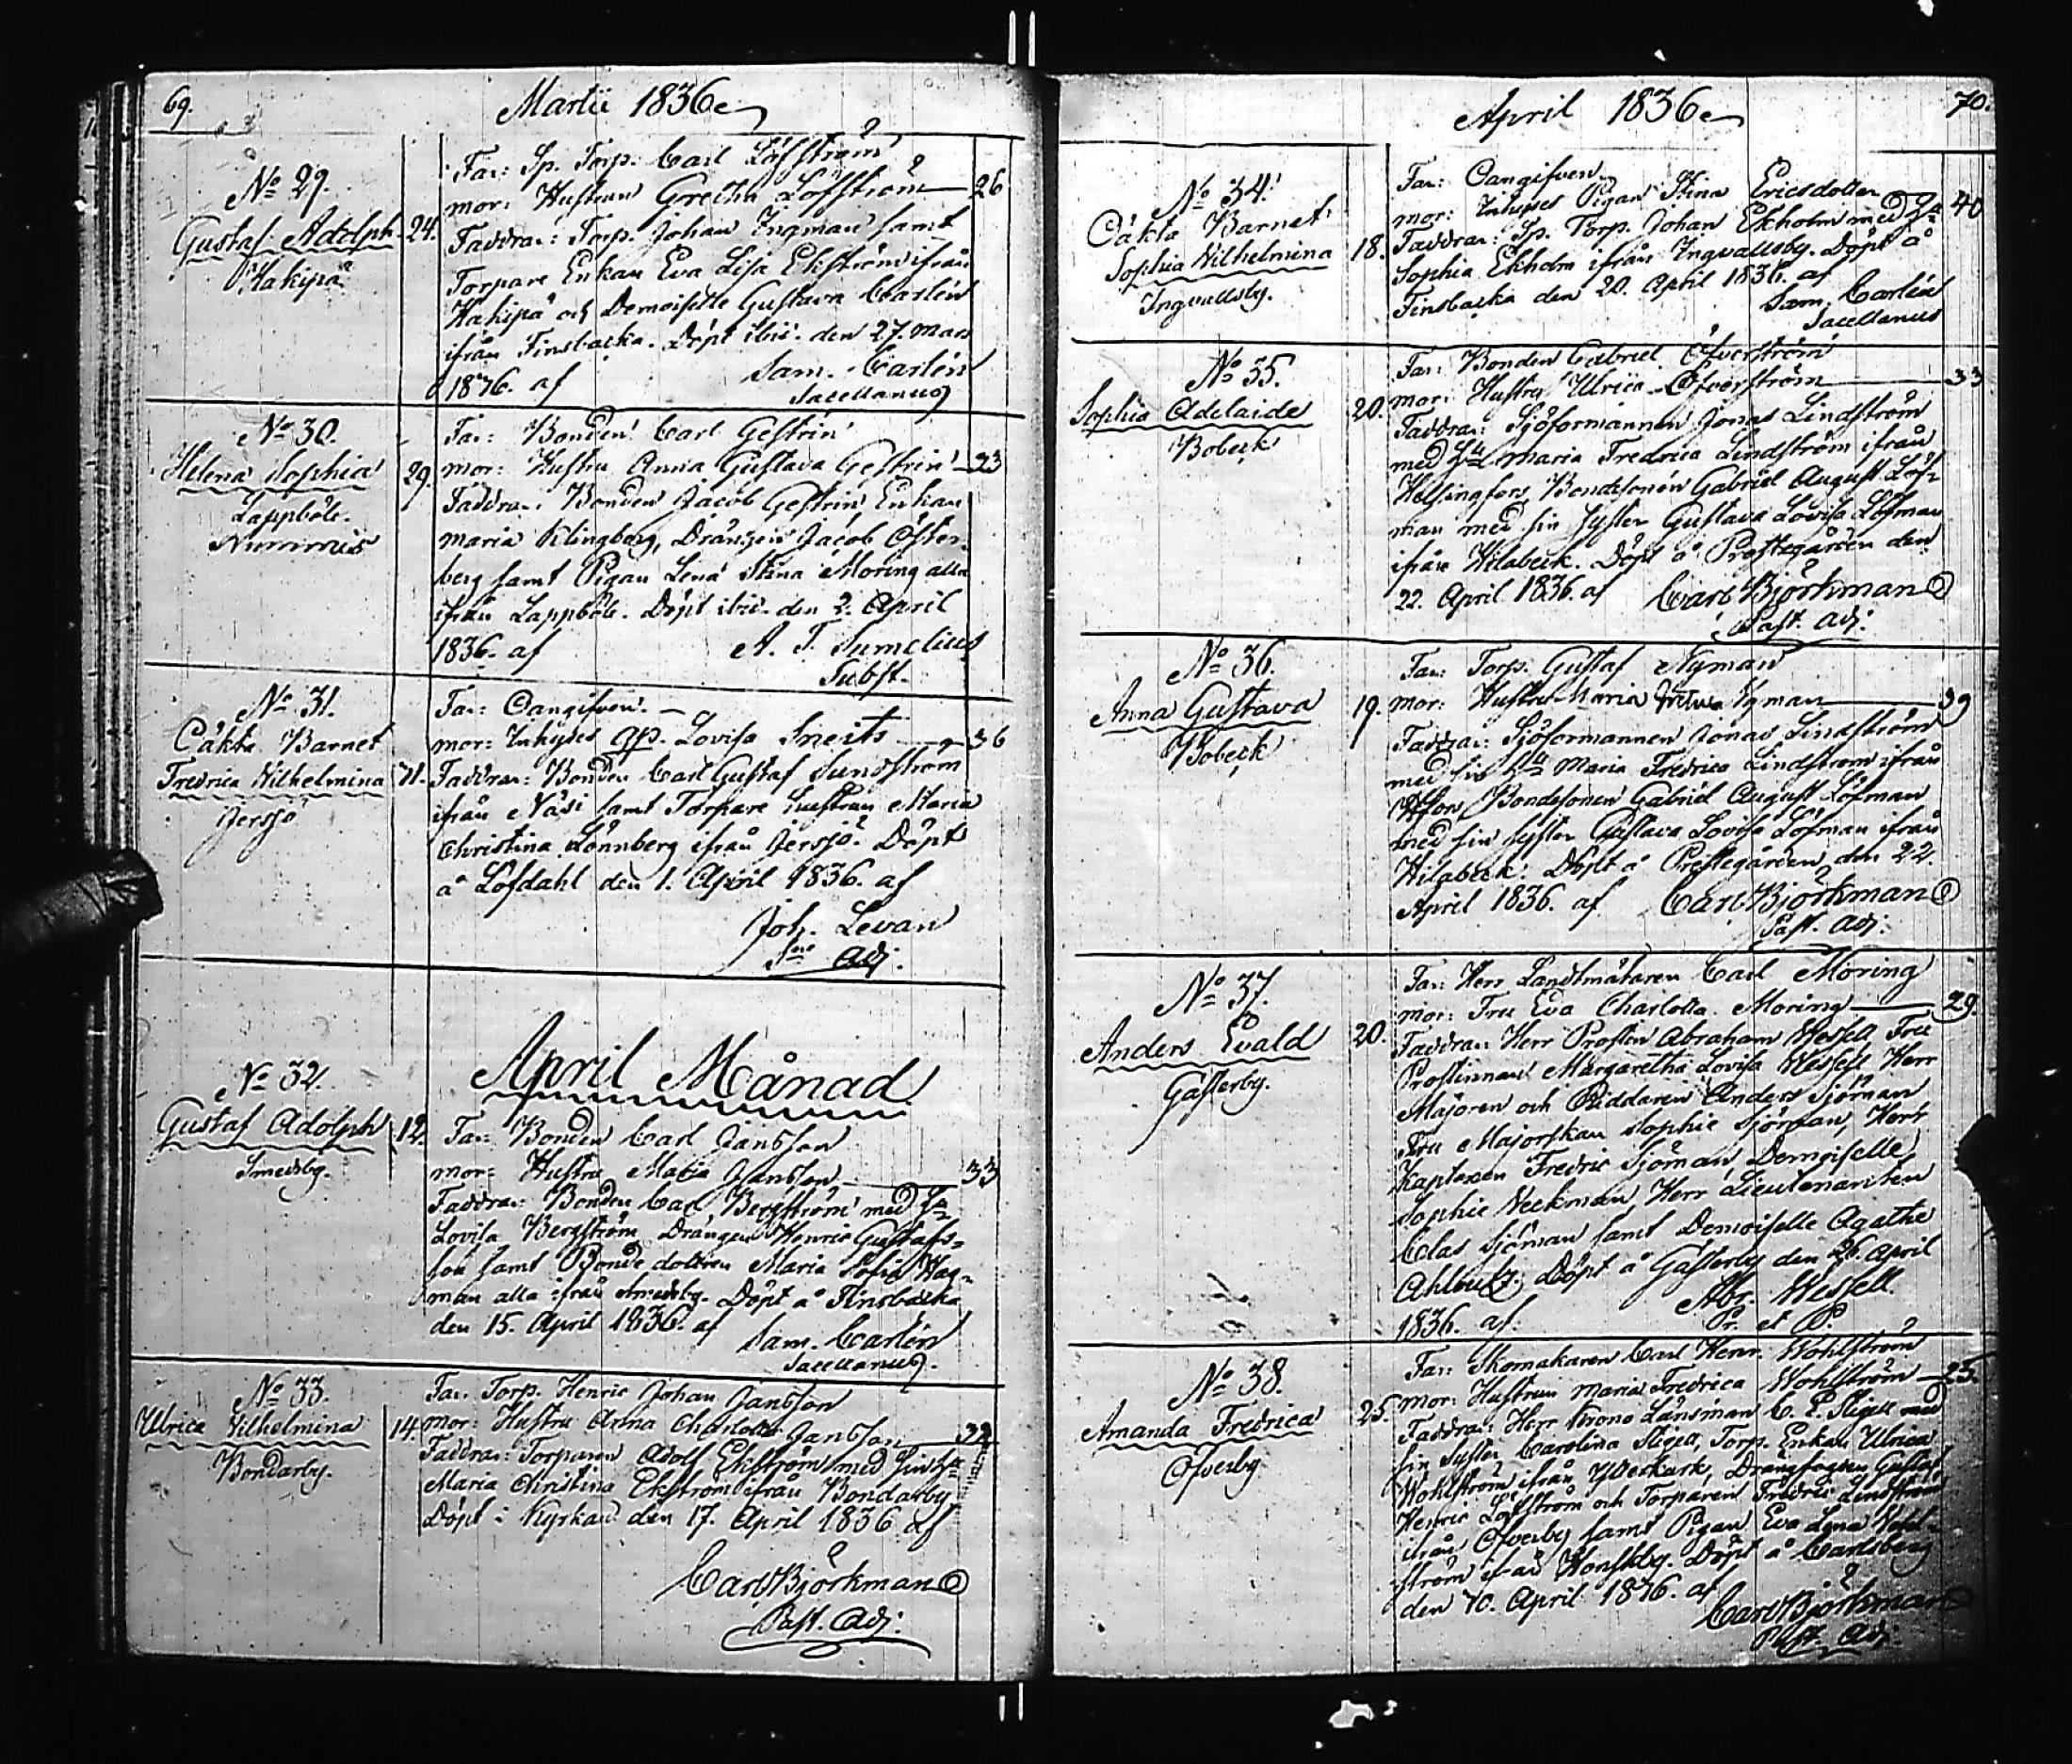 69.
Martii 1836
No 29.
Gustaf Adolph
Hakipä
24.
Far: Sp. Torp. Carl Löfström
mor: Hustrun Gretha Löfström 26
Faddrar: Torp. Johan Ingman samt
Torpare Enkan Eva Lisa Ekström ifrån
Hakipä och Demoiselle Gustava Carlén
ifrån Finsbacka. Döpt ibid. den 27. Mars
1836. af Sam. Carlén
Sacellanus
No 30.
Helena Sophia
Lappböle.
Nummis
29.
Far: Bonden Carl Gestrin
mor: Hustru Anna Gustava Gestrin 23
Faddrar: Bonden Jacob Gestrin Enkan
Maria Klingberg, Drängen Jacob Öster-
berg samt Pigan Lena Stina Moring alla
ifrån Lappböle. Döpt ibid. den 2. April
1836. af A. T. Sumelius
Subst.
No 31.
Oäkta Barnet
Fredrica Wilhelmina
Jersjö
31.
Far: Oangifven.
mor: Inhyses qp. Lovisa Sneits 36
Faddrar: Bonden Carl Gustaf Sundström
ifrån Näsi samt Torpare hustrun Maria
Christina Lönnberg ifrån Jersjö. Döpt
å Löfdahl den 1. April 1836. af
Joh. Levan
Adj.
April Månad
No 32.
Gustaf Adolph
Smedsby.
12.
Far: Bonden Carl Jansson
mor: Hustru Maria Jansson 33
Faddrar: Bonden Carl Bergström med H:u
Lovisa Bergström Drängen Henric Gustafs-
son samt Bonde dottren Maria Sofia Hag-
man alla ifrån Smedsby. Döpt å Finsbacka
den 15. April 1836. af Sam. Carlén
Sacellanus.
No 33.
Ulrica Wilhelmina
Bondarby.
14.
Far: Torp. Henric Johan Jansson
mor: Hustru Anna Charlotta Jansson 32
Faddrar: Torparen Adolf Ekström med sin H:u
Maria Christina Ekström ifrån Bondarby
Döpt i Kyrkan den 17. April 1836 af
Carl Björkman
Past. Adj:
April 1836
70.
No 34.
Oäkta Barnet
Sophia Wilhelmina
Ingvallsby.
18.
Far: Oangifven.
mor: Inhyses Pigan Stina Ericsdotter 40
Faddrar: Sp. Torp. Johan Ekholm med H:u
Sophia Ekholm ifrån Ingvallsby. Döpt å
Finsbacka den 20. April 1836. af
Sam. Carlén
Sacellanus
No 35.
Sophia Adelaide
Bobeck
20.
Far: Bonden Gabriel Öfverström
mor: Hustru Ulrica Öfverström 33
Faddrar: Sjöformannen Jonas Lindström
med H:u Maria Fredrica Lindström ifrån
Helsingfors, Bondesonen Gabriel August Löf-
man med sin syster Gustava Lovisa Löfman
ifrån Hilabeck. Döpt å Prostegården den
22. April 1836. af Carl Björkman
Past. Adj:
No 36.
Anna Gustava
Bobeck
19.
Far: Torp. Gustaf Nyman
mor: Hustru Maria Nyman 39
Faddrar: Sjöformannen Jonas Lindström
med sin H:u Maria Fredrica Lindström ifrån
Hfors, Bondesonen Gabriel August Löfman
med sin syster Gustava Lovisa Löfman ifrån
Hilabeck. Döpt å Prestegården den 22.
April 1836. af Carl Björkman
Past. Adj:
No 37.
Anders Evald
Gästerby.
20.
Far: Herr Landtmätaren Carl Moring
mor: Fru Eva Charlotta Moring 29.
Faddrar: Herr Prosten Abraham Wessell, Fru
Prostinnan Margaretha Lovisa Wessell, Herr
Majoren och Riddaren Anders Sjöman
Fru Majorskan Sophie Sjöman, Herr
Kaptenen Fredric Sjöman, Demoiselle
Sophie Neckman, Herr Lieutenanten
Clas Sjöman samt Demoiselle Agathe
Döpt å Gästerby den 26. April
1836. af Abr. Wessell.
Pr. et P.
No 38.
Amanda Fredrica
Öfverby
25.
Far: Skomakaren Carl Henr. Wohlström
mor: Hustrun Maria Fredrica Wohlström 25.
Faddrar: Herr Krono Länsman C. P. Stigell med
sin syster Carolina Stigell, Torp. Enkan Ulrica
Wohlström ifrån Drängfogden Gustaf
Henric Löfström och Torparen Fredric Lindström
ifrån Öfverby samt Pigan Eva Lena Wohl-
ström ifrån Döpt å Carlsberg
den 30. April 1836. af
Carl Björkman
Past. Adj: